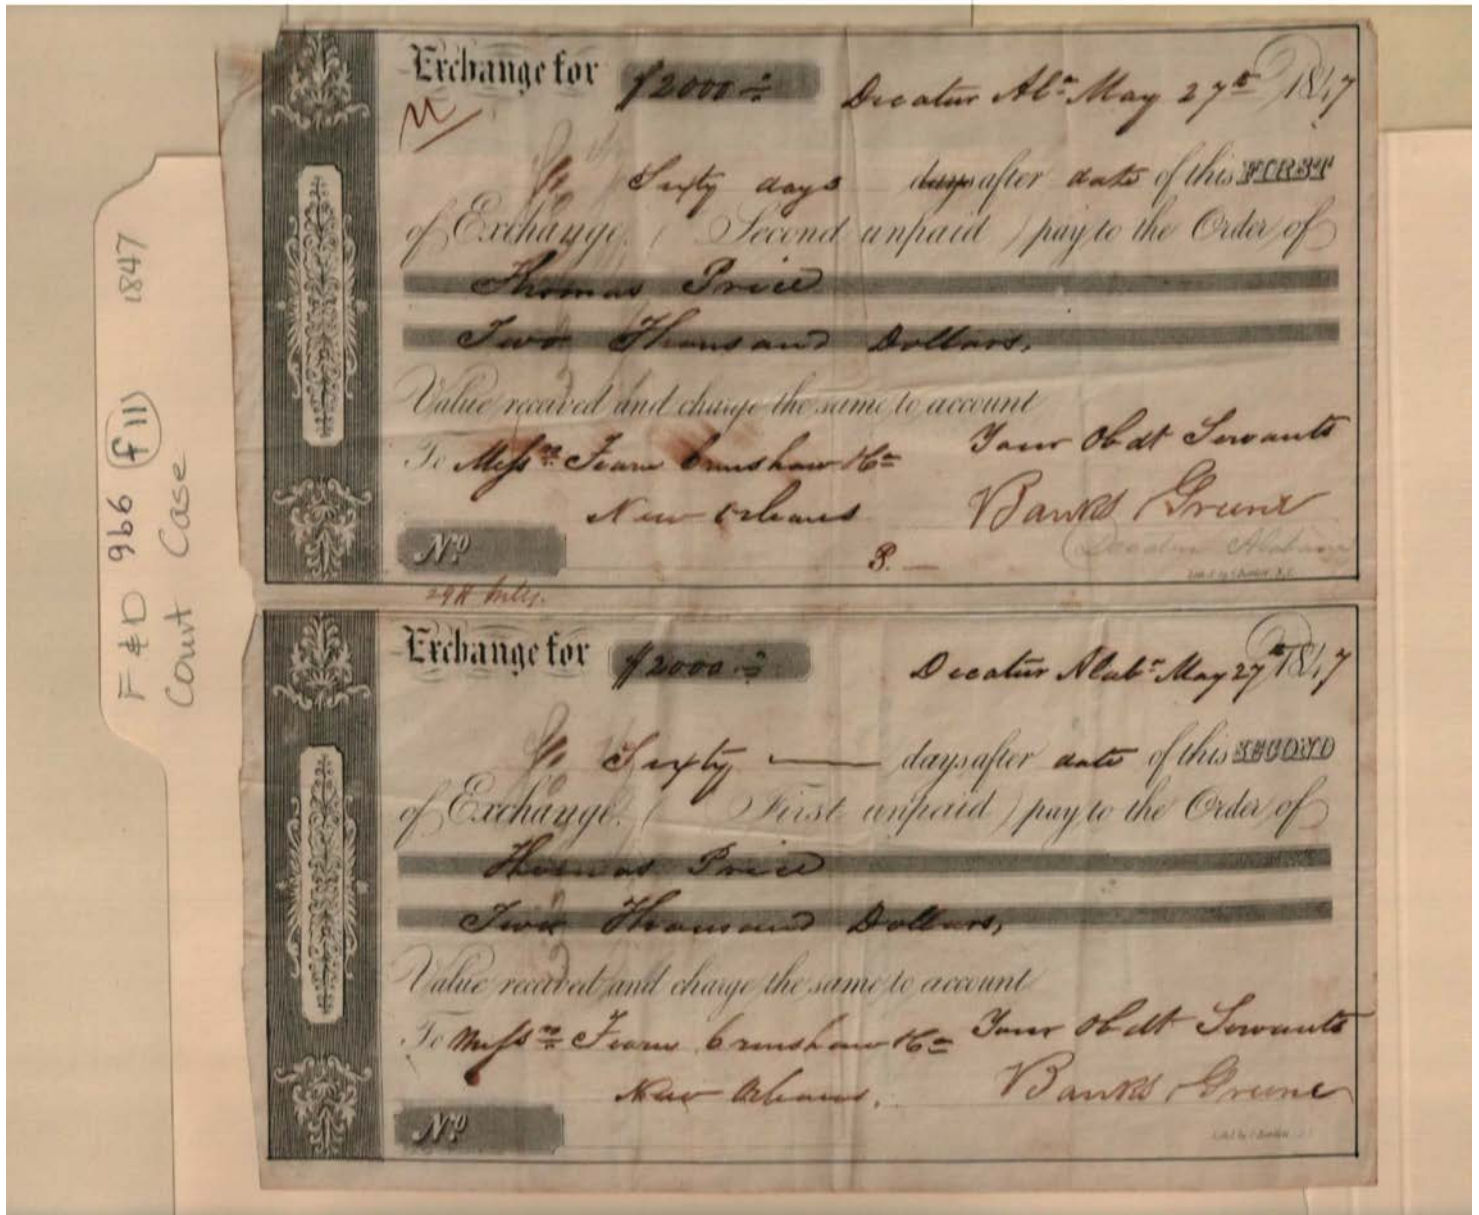 Exchange for $2000 Decatur Ala May 27th 1847
Sixty days days after date of this FIRST
of Exchange. (Second unpaid) pay to the Order of
Thomas Price
Two Thousand Dollars,
Value received and charge the same to account
Your Obdt Servants
To Messrs Fearn Crenshaw & Co
New Orleans Banks Greene
Decatur Alabama
No
Exchange for $2000 Decatur Alaba May 27th 1847
Sixty days after date of this SECOND
of Exchange. (First unpaid) pay to the Order of
Thomas Price
Two Thousand Dollars,
Value received and charge the same to account
To Messrs Fearn Crenshaw & Co Your Obdt Servants
New Orleans. Banks Greene
No
F & D 966 f 11 1847
Court Case